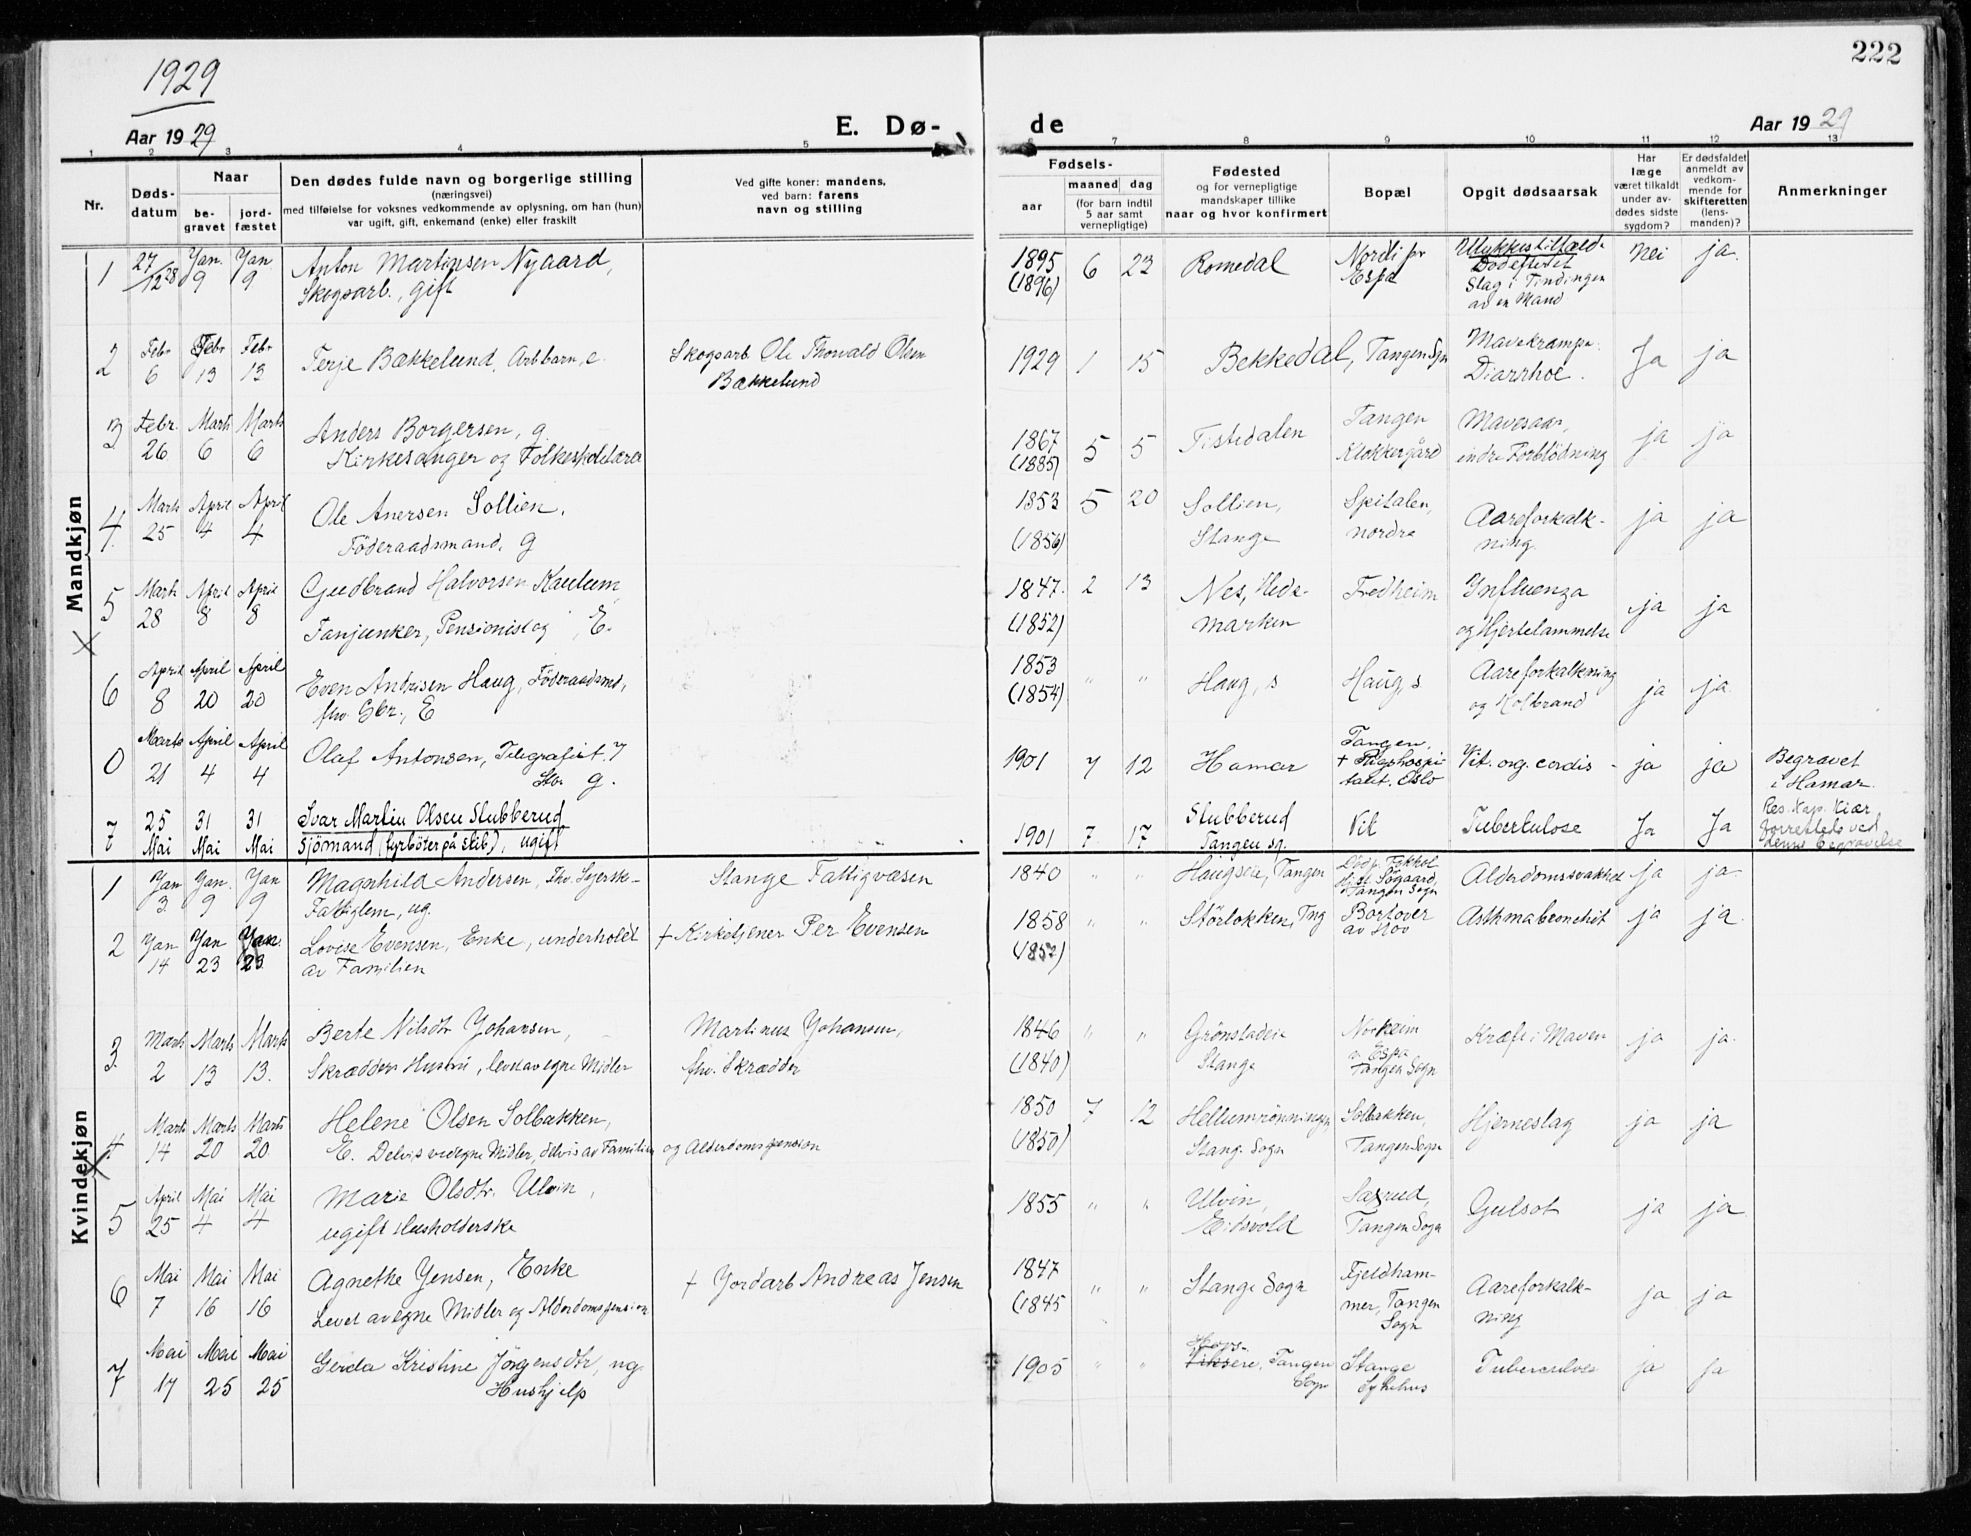 222
1929
Aar 1929
E. Dø-
de
Aar 1929
1 2 3 4 5 6 7 8 9 10 11 12 13
Nr.
Døds-
datum
Naar
be-
gravet
jord-
fæstet
Den dødes fulde navn og borgerlige stilling
(næringsvei)
med tilføielse for voksnes vedkommende av oplysning, om han (hun)
var ugift, gift, enkemand (enke) eller fraskilt
Ved gifte koner: mandens,
ved barn: farens
navn og stilling
Fødsels-
aar
maaned dag
(for barn indtil
5 aar samt
vernepligtige)
Fødested
og for vernepligtige
mandskaper tillike
naar og hvor konfirmert
Bopæl
Opgit dødsaarsak
Har
læge
været tilkaldt
under av-
dødes sidste
sygdom?
Er dødsfaldet
anmeldt av
vedkom-
mende for
skifteretten
(lens-
manden)?
Anmerkninger
Mandkjøn
1 27/12 28 Jan. 9 Jan 9 Anton Martinsen Nyaard,
Skogsarb., gift
1895 (1896) 6 23 Romedal Nordli pr Espa Ulykkestilfælde
Død efter et
Slag i Tindingen
av en Mand
nei ja.
2 Febr 6 Febr 13 Febr 13 Terje Bækkelund, Arb.barn, e.
Skogsarb. Ole Thorvald Olsen
Bækkelund
1929 1 15 Bekkedal, Tangen Sgn Mavekrampe.
Diarrhoe.
Ja ja
3 Febr. 26 Marts 6 Marts 6 Anders Borgersen, g
Kirkesanger og Folkeskolelærer
1867 (1885) 5 5 Tistedalen Tangen
Klokkergård
Mavesaar,
indre Forblödning
ja ja
4. Marts 25 April 4 April 4 Ole Anersen Sollien,
Föderaadsmand, g
1853 (1856) 5 20 Sollien,
Stange
Spitalen,
nordre
Aareforkalk-
ning.
ja ja
5 Marts 28 April 8 April 8 Gudbrand Halvorsen Kaulum,
Fanjunker, Pensionist og , E.
1847. (1852) 2 13 Nes, Hede-
marken
Fredheim Influenza
og Hjertelammelse
ja ja
6 April 8 April 20 April 20 Even Andrisen Haug, Föderaadsmd,
fhv. Gbr., E
1853 (1854) " " Haug, s Haug, s Aareforkalkning
og Kolbrand
ja ja.
0 Marts 21 April 4 April 4 Olaf Antonsen, Telegrafist.
g.
1901 7 12 Hamar Tangen,
+ Rigshospi-
talet. Oslo
Vit. org. cordis - ja ja Begravet
i Hamar.
7 25 Mai 31 Mai 31 Mai Ivar Martin Olsen Stubberud
Sjömand (fyrböter på skib), ugift
1901 7 17 Stubberud
Tangen sg.
Tuberkulose Ja Ja Res. Kap. Kiær
forrettede ved
denne Begravelse
Kvindekjøn
1 Jan 3. Jan. 9 Jan 9 Magnhild Andersen, fhv. Syerske-
Fattiglem, ug.
Stange Fattigvæsen
1840 " " Haugseie, Tangen Tangen Sogn Alderdomssvakhet ja ja
2 Jan 14 Jan 23 Jan. 23 Lovise Evensen, Enke, underholdt
av Familien
+ Kirketjener Per Evensen
1858 (1852) " " Störlokken, Tng Bortover
av Hov
Asthma bronchit ja ja.
3 Marts 2 Marts 13 Marts 13. Berte Nilsdtr Johansen,
Skrædders Hustru, levet av egne Midler
Martinus Johansen,
fhv. Skrædder
1846 (1840) " " Grönstadeie
Stange
Norheim
v. Espa
Tangen Sogn
Kræft i Maven ja ja.
4 Marts 14 Marts 20 Marts 20 Helene Olsen Solbakken,
E. Delvis ved egne Midler, delvis av Familien og Alderdomspension
1850 (1850) 7 12 Hellumrönningen
Stang. Sogn
Solbakken,
Tangen Sogn
Hjerneslag ja ja
5 April 25 Mai 4 Mai 4 Marie Olsdtr. Ulvin,
ugift Husholderske
1855 " " Ulvin,
Eidsvold
Saxrud,
Tangen Sogn
Gulsot ja ja
6 Mai 7 Mai 16 Mai 16 Agnethe Jensen, Enke
Levet av egne Midler og Alderdomspension
+ Jordarb Andreas Jensen
1847 (1845 " " Stange Sogn Fjeldham-
mer, Tangen
Sogn
Aareforkalk-
ning
ja ja
7 Mai 17 Mai 25 Mai 25 Gerda Kristine Jörgensdtr, ug.
Hushjelp
1905 " " Tangen
Sogn
Stange
Sykehus
Tuberculose ja ja